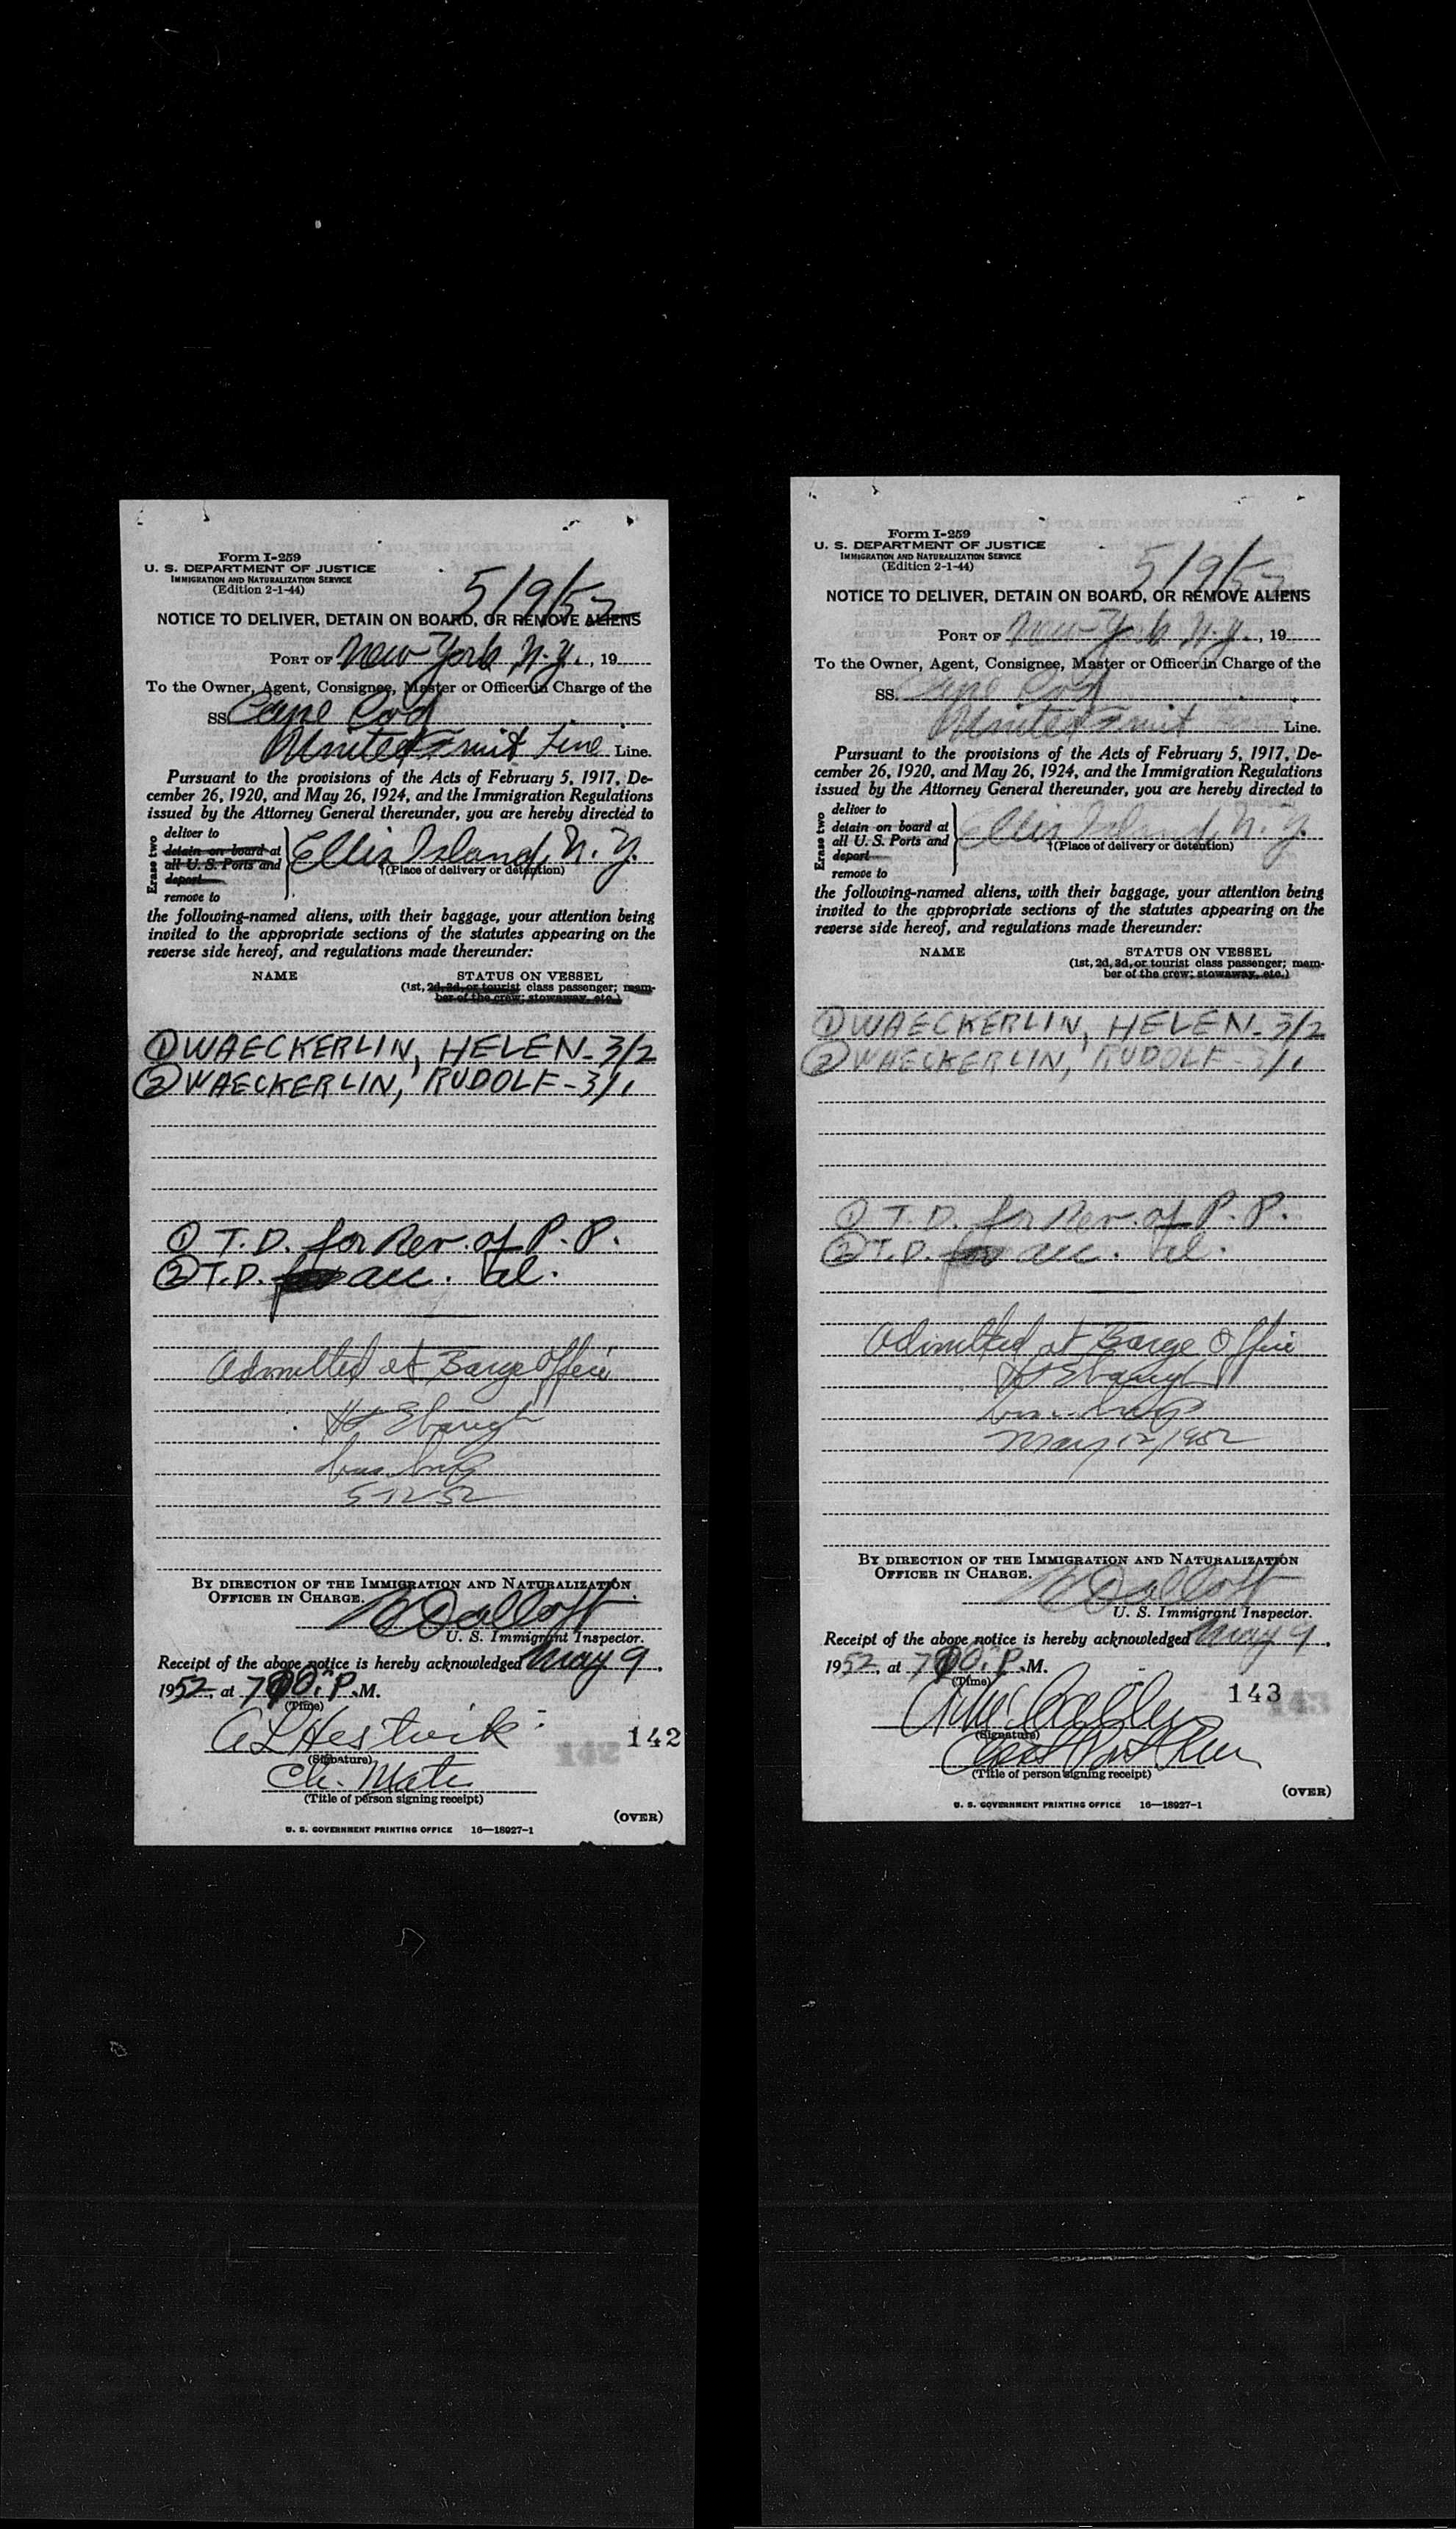 Form I-259
U. S. DEPARTMENT OF JUSTICE
IMMIGRATION AND NATURALIZATION SERVICE
(Edition 2-1-44)
5/9/52
NOTICE TO DELIVER, DETAIN ON BOARD, OR REMOVE ALIENS
PORT OF New York, N.Y., 19
To the Owner, Agent, Consignee, Master or Officer in Charge of the
SS Cape Cod
United Fruit Line Line.
Pursuant to the provisions of the Acts of February 5, 1917, De-
cember 26, 1920, and May 26, 1924, and the Immigration Regulations
issued by the Attorney General thereunder, you are hereby directed to
Erase two
deliver to
detain on board at
all U. S. Ports and
depart
remove to
Ellis Island, N. Y.
†(Place of delivery or detention)
the following-named aliens, with their baggage, your attention being
invited to the appropriate sections of the statutes appearing on the
reverse side hereof, and regulations made thereunder:
NAME STATUS ON VESSEL
(1st, 2d, 3d, or tourist class passenger; mem-
ber of the crew; stowaway, etc.)
① WAECKERLIN, HELEN - 3/2
② WAECKERLIN, RUDOLF - 3/1
① T. D. for Rev. of P. P.
② T. D. acc.
Admitted at Barge Office
Ebaugh
5-12-52
BY DIRECTION OF THE IMMIGRATION AND NATURALIZATION
OFFICER IN CHARGE.
U. S. Immigrant Inspector.
Receipt of the above notice is hereby acknowledged May 9,
1952, at P.M.
(Time)
A L Hestwik
(Signature)
142
Ch. Mate
(Title of person signing receipt)
(OVER)
U. S. GOVERNMENT PRINTING OFFICE 16—18927-1
Form I-259
U. S. DEPARTMENT OF JUSTICE
IMMIGRATION AND NATURALIZATION SERVICE
(Edition 2-1-44)
5/9/52
NOTICE TO DELIVER, DETAIN ON BOARD, OR REMOVE ALIENS
PORT OF New York N.Y., 19
To the Owner, Agent, Consignee, Master or Officer in Charge of the
SS Cape Cod
United Fruit Line.
Pursuant to the provisions of the Acts of February 5, 1917, De-
cember 26, 1920, and May 26, 1924, and the Immigration Regulations
issued by the Attorney General thereunder, you are hereby directed to
Erase two
deliver to
detain on board at
all U. S. Ports and
depart
remove to
Ellis Island, N. Y.
†(Place of delivery or detention)
the following-named aliens, with their baggage, your attention being
invited to the appropriate sections of the statutes appearing on the
reverse side hereof, and regulations made thereunder:
NAME STATUS ON VESSEL
(1st, 2d, 3d, or tourist class passenger; mem-
ber of the crew; stowaway, etc.)
① WAECKERLIN, HELEN - 3/2
② WAECKERLIN, RUDOLF - 3/1
① T. D. for Rev. of P. P.
② T. D. acc.
Admitted at Barge Office
Ebaugh
May 12, 1952
BY DIRECTION OF THE IMMIGRATION AND NATURALIZATION
OFFICER IN CHARGE.
U. S. Immigrant Inspector.
Receipt of the above notice is hereby acknowledged May 9,
1952, at P.M.
(Time)
143
(Signature)
(Title of person signing receipt)
(OVER)
U. S. GOVERNMENT PRINTING OFFICE 16—18927-1